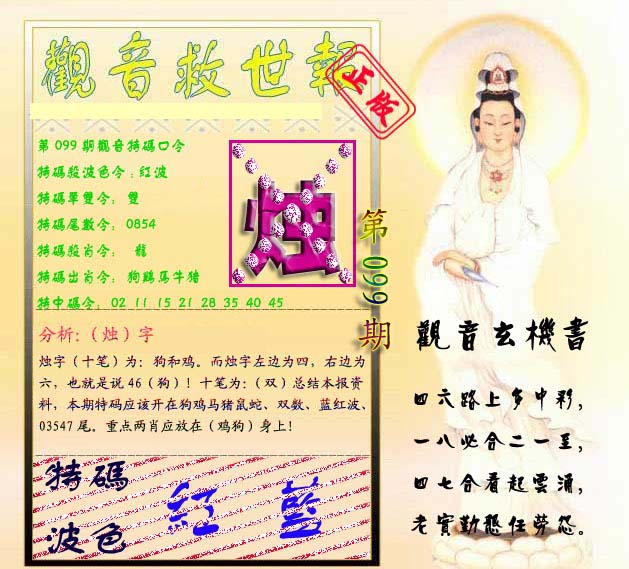 觀音救世報
正版
第099期觀音特碼口令
特碼殺波色令:紅波
特碼單雙令: 雙
特碼尾數令: 0854
特碼殺肖令: 龍
特碼出肖令: 狗鷄馬牛猪
特中碼令: 02 11 15 21 28 35 40 45
烛
第099期
分析:（烛）字
烛字（十笔）为: 狗和鸡。而烛字左边为四，右边为
六，也就是说46（狗）！十笔为:（双）总结本报资
料，本期特码应该开在狗鸡马猪鼠蛇、双数、蓝红波、
03547尾。重点两肖应放在（鸡狗）身上！
特碼
波色
紅 藍
觀音玄機書
四六路上多中彩，
一八必合二一至，
四七合看起雲涌，
老實勤懇任勞怨。